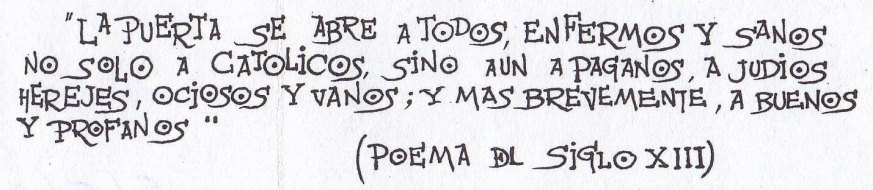 "LA PUERTA SE ABRE A TODOS, ENFERMOS Y SANOS
NO SOLO A CATOLICOS, SINO AUN A PAGANOS, A JUDIOS
HEREJES, OCIOSOS Y VANOS; Y MAS BREVEMENTE, A BUENOS
Y PROFANOS"
(POEMA DL SIGLO XIII)